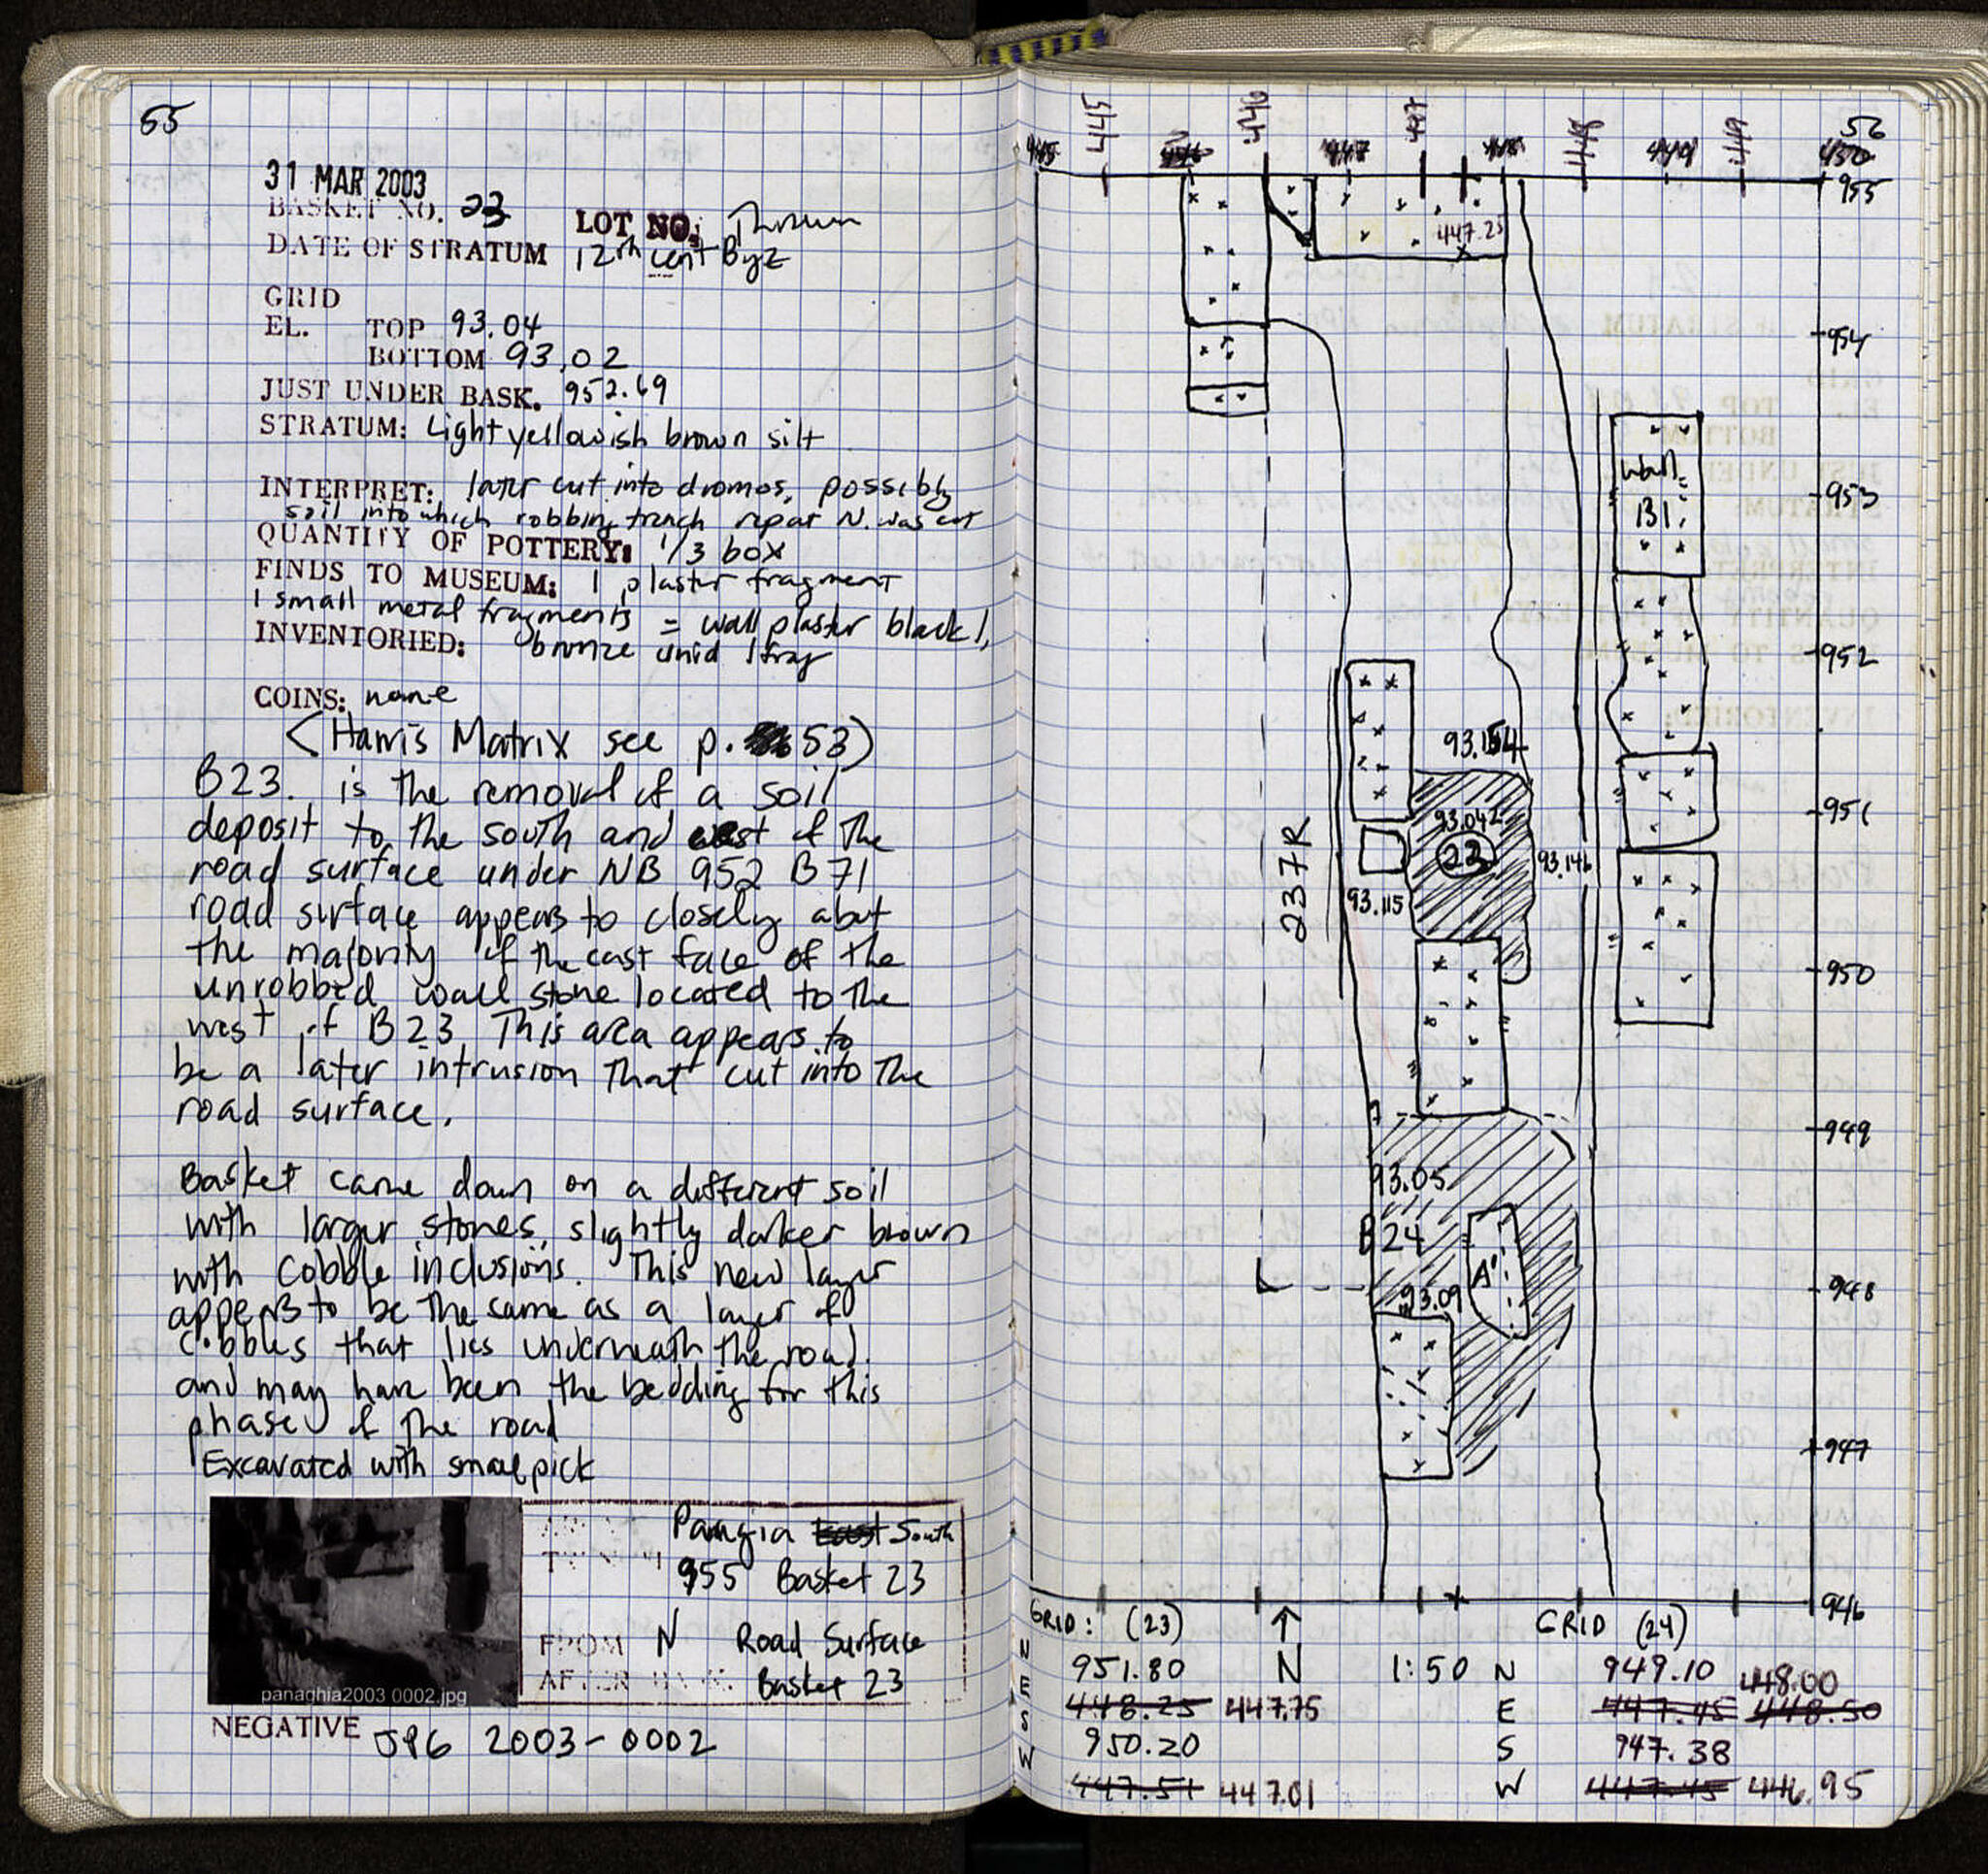 55
31 MAR 2003
BASKET NO. 23
LOT NO: Thrown
DATE OF STRATUM 12th cent Byz
GRID
EL. TOP 93.04
BOTTOM 93.02
JUST UNDER BASK. 952.69
STRATUM: Light yellowish brown silt
INTERPRET: later cut into dromos, possibly
soil into which robbing trench N. was cut
QUANTITY OF POTTERY: 1/3 box
FINDS TO MUSEUM: 1 plaster fragment
1 small metal fragments = wall plaster black 1,
INVENTORIED: bronze unid 1 frag
COINS: none
(Harris Matrix see p. 53)
B23. is the removal of a soil
deposit to the south and west of the
road surface under NB 952 B71
road surface appears to closely abut
the majority of the east face of the
unrobbed wall stone located to the
west of B23. This area appears to
be a later intrusion that cut into the
road surface.
Basket came down on a different soil
with larger stones, slightly darker brown
with cobble inclusions. This new layer
appears to be the same as a layer of
cobbles that lies underneath the road
and may have been the bedding for this
phase of the road
Excavated with small pick
Panagia East South
955 Basket 23
FROM N Road Surface
AFTER Basket 23
panaghia2003 0002.jpg
NEGATIVE JPG 2003-0002
56
445 446 447 448 449 450
445 446 447 448 449
955
447.25
954
Wall
131
953
952
93.154
951
93.042
23
93.146
93.115
237R
950
949
93.05
B24
A'
948
93.09
947
946
GRID: (23)
N 951.80
E 448.25 447.75
S 950.20
W 447.51 447.01
N 1:50
GRID (24)
N 949.10
E 447.45 448.50 448.00
S 947.38
W 447.45 446.95